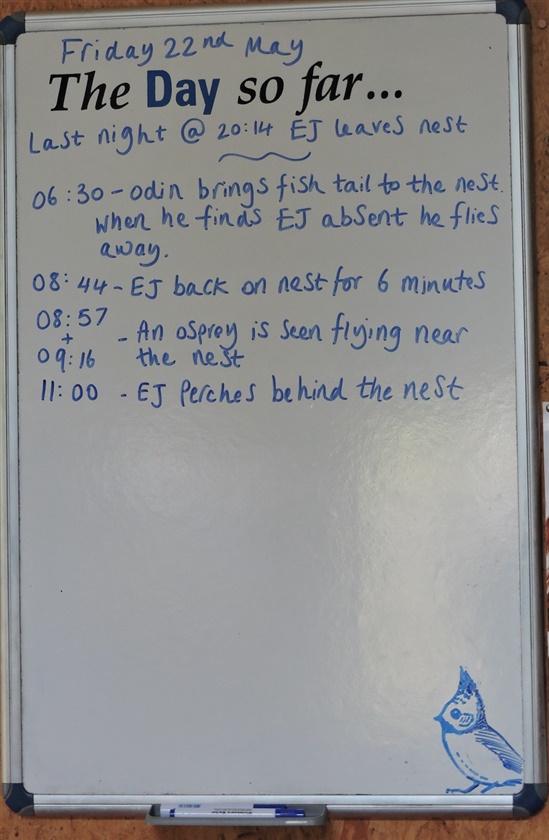 Friday 22nd May
The Day so far...
Last night @ 20:14 EJ leaves nest
06:30 - Odin brings fish tail to the nest.
when he finds EJ absent he flies
away.
08:44 - EJ back on nest for 6 minutes
08:57
+
09:16 - An osprey is seen flying near
the nest
11:00 - EJ perches behind the nest